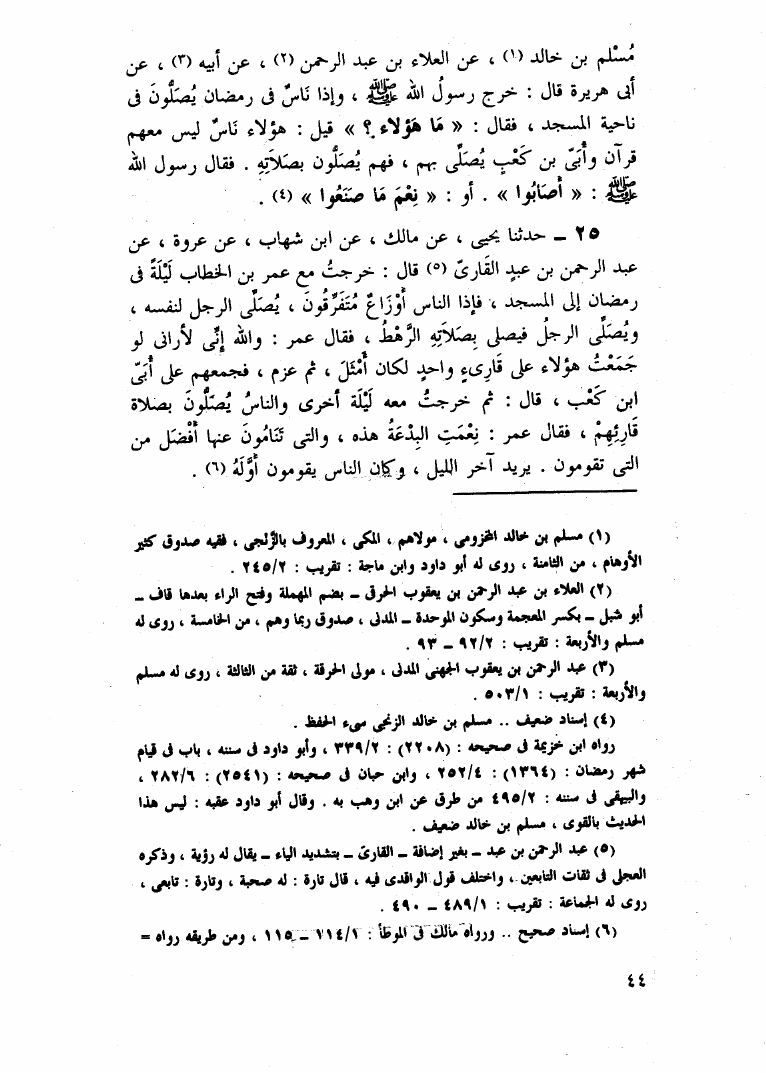 مُسْلم بن خالد (١) ، عن العلاء بن عبد الرحمن (٢) ، عن أبيه (٣) ، عن
أبى هريرة قال : خرج رسولُ الله ﷺ ، وإذا نَاسٌ فى رمضان يُصَلُّونَ فى
ناحية المسجد ، فقال : « مَا هَؤلاء ؟ » قيل : هؤلاء نَاسٌ ليس معهم
قرآن وأُبَىّ بن كَعْبٍ يُصَلِّى بهم ، فهم يُصَلُّون بصَلَاتِهِ . فقال رسول الله
ﷺ : « أصَابُوا » . أو : « نِعْمَ مَا صَنَعُوا » (٤) .
٢٥ – حدثنا يحيى ، عن مالك ، عن ابن شهاب ، عن عروة ، عن
عبد الرحمن بن عبدٍ القَارِىّ (٥) قال : خرجتُ مع عمر بن الخطاب لَيْلَةً فى
رمضان إلى المسجد ، فإذا الناس أَوْزَاعٌ مُتَفَرِّقُونَ ، يُصَلِّى الرجل لنفسه ،
ويُصَلِّى الرجلُ فيصلى بِصَلَاتِهِ الرَّهْطُ ، فقال عمر : والله إنِّى لأرانى لو
جَمَعْتُ هؤلاء على قَارِىءٍ واحدٍ لكان أَمْثَلَ ، ثم عزم ، فجمعهم على أُبَىّ
ابن كَعْب ، قال : ثم خرجتُ معه لَيْلَة أخرى والناسُ يُصَلُّونَ بصلاة
قَارِئِهِمْ ، فقال عمر : نِعْمَتِ البِدْعَةُ هذه ، والتى تَنَامُونَ عنها أَفْضَل من
التى تقومون . يريد آخر الليل ، وكان الناس يقومون أَوَّلَهُ (٦) .
(١) مسلم بن خالد المخزومى ، مولاهم ، المكى ، المعروف بالزَّنجى ، فقيه صدوق كثير
الأوهام ، من الثامنة ، روى له أبو داود وابن ماجة : تقريب : ٢٤٥/٢ .
(٢) العلاء بن عبد الرحمن بن يعقوب الحرق – بضم المهملة وفتح الراء بعدها قاف –
أبو شبل – بكسر المعجمة وسكون الموحدة – المدنى ، صدوق ربما وهم ، من الخامسة ، روى له
مسلم والأربعة : تقريب : ٩٢/٢ – ٩٣ .
(٣) عبد الرحمن بن يعقوب الجهنى المدنى ، مولى الحرقة ، ثقة من الثالثة ، روى له مسلم
والأربعة : تقريب : ٥٠٣/١ .
(٤) إسناد ضعيف .. مسلم بن خالد الزنجى سىء الحفظ .
رواه ابن خزيمة فى صحيحه : (٢٢٠٨) : ٣٣٩/٢ ، وأبو داود فى سننه ، باب فى قيام
شهر رمضان : (١٣٦٤) : ٢٥٢/٤ ، وابن حبان فى صحيحه : (٢٥٤١) : ٢٨٢/٦ ،
والبيقى فى سننه : ٤٩٥/٢ من طرق عن ابن وهب به . وقال أبو داود عقبه : ليس هذا
الحديث بالقوى ، مسلم بن خالد ضعيف .
(٥) عبد الرحمن بن عبد – بغير إضافة – القارىّ – بتشديد الياء – يقال له رؤية ، وذكره
العجلى فى ثقات التابعين ، واختلف قول الواقدى فيه ، قال تارة : له صحبة ، وتارة : تابعى ،
روى له الجماعة : تقريب : ٤٨٩/١ – ٤٩٠ .
(٦) إسناد صحيح .. ورواه مالك فى الموطأ : ١١٤/١ – ١١٥ ، ومن طريقه رواه =
٤٤